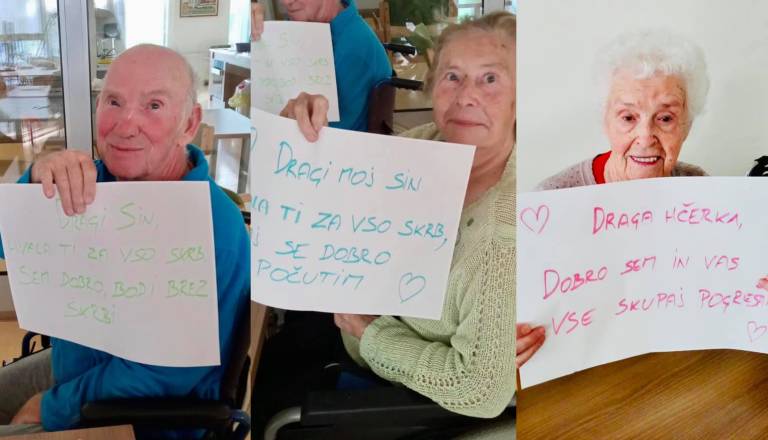 DRAGI SIN,
TI ZA VSO SKRB
SEM DOBRO, BODI BREZ
SKRBI
SIN
VSO SKRB
BREZ
DRAGI MOJ SIN
TI ZA VSO SKRB,
SE DOBRO
POČUTIM
DRAGA HČERKA,
DOBRO SEM IN VAS
VSE SKUPAJ